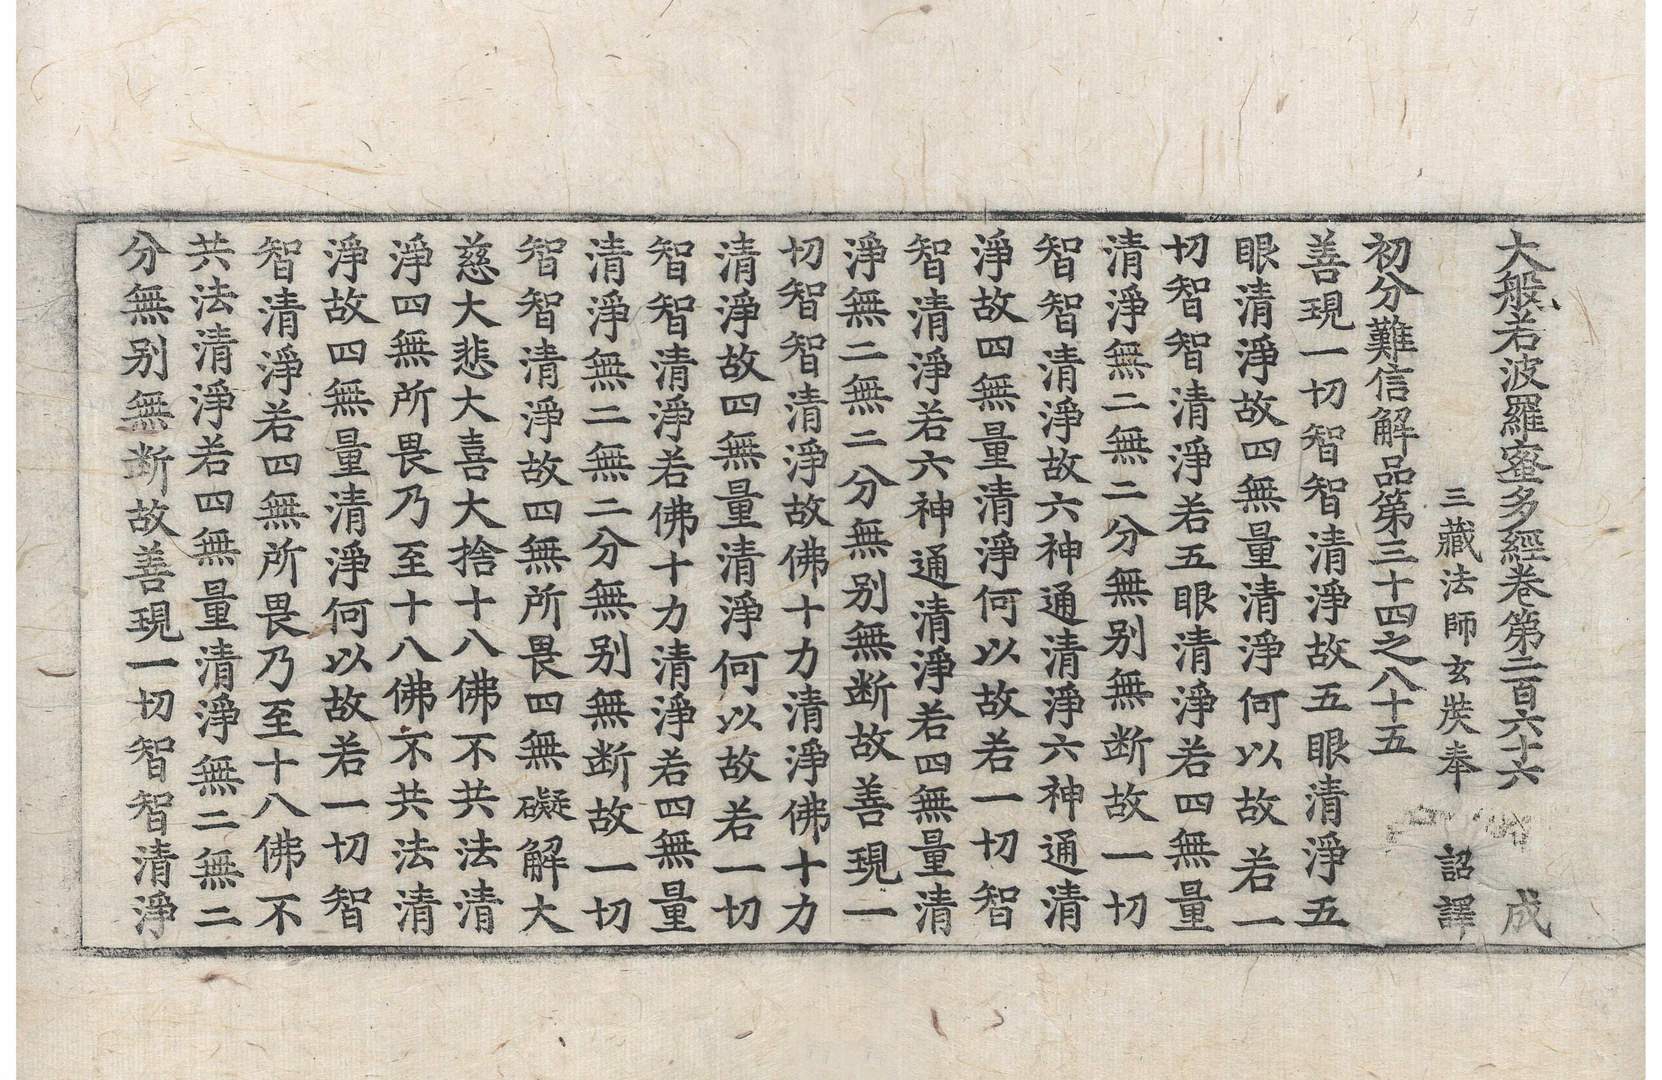 大般若波羅蜜多經卷第二百六十六 成
三藏法師玄奘奉 詔譯
初分難信解品第三十四之八十五
善現一切智智清淨故五眼清淨五
眼清淨故四無量清淨何以故若一
切智智清淨若五眼清淨若四無量
清淨無二無二分無别無断故一切
智智清淨故六神通清淨六神通清
淨故四無量清淨何以故若一切智
智清淨若六神通清淨若四無量清
淨無二無二分無别無断故善現一
切智智清淨故佛十力清淨佛十力
清淨故四無量清淨何以故若一切
智智清淨若佛十力清淨若四無量
清淨無二無二分無别無断故一切
智智清淨故四無所畏四無礙解大
慈大悲大喜大捨十八佛不共法清
淨四無所畏乃至十八佛不共法清
淨故四無量清淨何以故若一切智
智清淨若四無所畏乃至十八佛不
共法清淨若四無量清淨無二無二
分無别無断故善現一切智智清淨